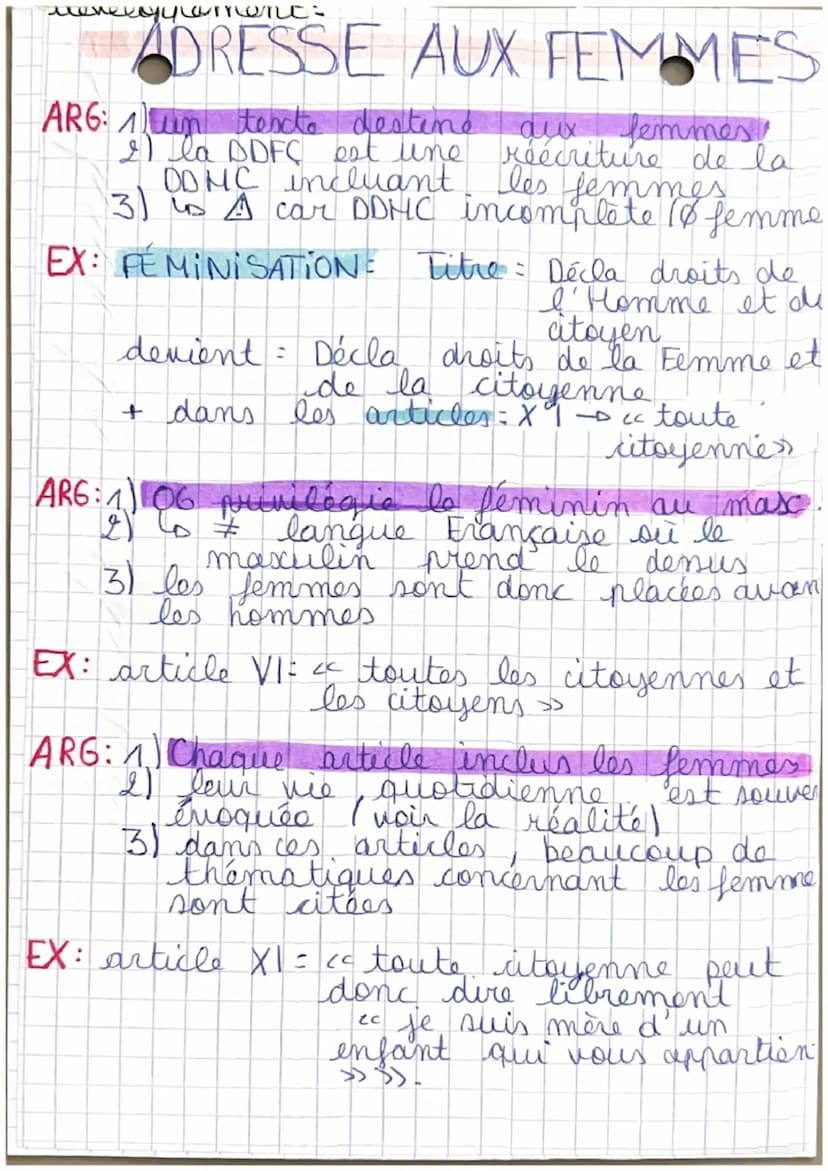 développement:
ADRESSE AUX FEMMES
ARG: 1) un texte destiné aux femmes
2) la DDFC est une réécriture de la
DDHC incluant les femmes
3) ↳ ⚠ car DDHC incomplète (Ø femme
EX: FÉMINISATION: Titre: Décla droits de
l'Homme et du
citoyen
devient: Décla droits de la Femme et
de la citoyenne
+ dans les articles: XI → « toute
citoyenne»
ARG: 1) OG privilégie le féminin au masc.
2) ↳ ≠ langue Française où le
masculin prend le dessus
3) les femmes sont donc placées avan
les hommes
EX: article VI: « toutes les citoyennes et
les citoyens »
ARG: 1) Chaque article inclus les femmes
2) leur vie quotidienne est souve
évoquée (voir la réalité)
3) dans ces articles, beaucoup de
thématiques concernant les femme
sont citées
EX: article XI: « toute citoyenne peut
donc dire librement
« je suis mère d'un
enfant qui vous appartien
» ».